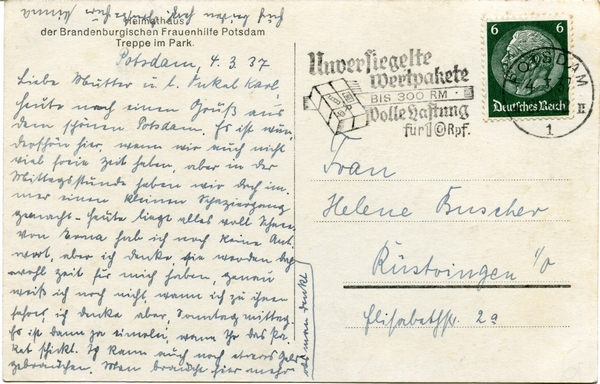 Heimathaus
der Brandenburgischen Frauenhilfe Potsdam
Treppe im Park.
Potsdam, 4.3.37
Liebe Mutter u. l. Onkel Karl
heute noch einen Gruß aus
dem schönen Potsdam. Es ist wun-
derschön hier, wenn wir auch nicht
viel freie Zeit haben, aber in der
Mittagsstunde haben wir doch im-
mer einen kleinen Spaziergang
gemacht - heute liegt alles voll Schnee
von Erna hab ich noch keine Ant-
wort, aber ich denke sie werden doch
wohl Zeit für mich haben, genau
weiß ich noch nicht, wann ich zu ihnen
fahre, ich denke aber, Sonntag mittag.
Es ist dann ja einerlei, wann Ihr das Pa-
ket schickt. Ich kann auch noch etwas Geld
gebrauchen. Man braucht hier mehr
als man denkt
Unversiegelte
Wertpakete
BIS 300 RM
Volle Haftung
für 10 Rpf.
6 6
Deutsches Reich
POTSDAM
1
II
Frau
Helene Buscher
Rüstringen i/O
Elisabethstr. 2a